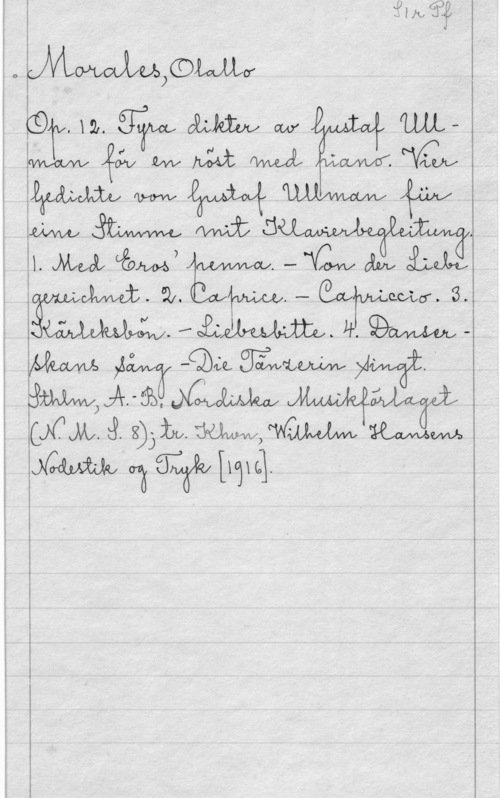 S1r Pf
Morales, Olallo
Op. 12. Fyra dikter av Gustaf Ull-
man för en röst med piano. Vier
Gedichte von Gustaf Ullman für
eine Stimme mit Klavierbegleitung.
1. Med Eros' penna. - Von der Liebe
gezeichnet. 2. Caprice. - Capriccio. 3.
Kärleksbön. - Liebesbitte. 4. Danser-
skans sång - Die Tänzerin singt.
Sthlm, A.-B. Nordiska Musikförlaget
(N. M. S. 8); tr. Khvn, Wilhelm Hansens
Nodestik og Tryk [1916].